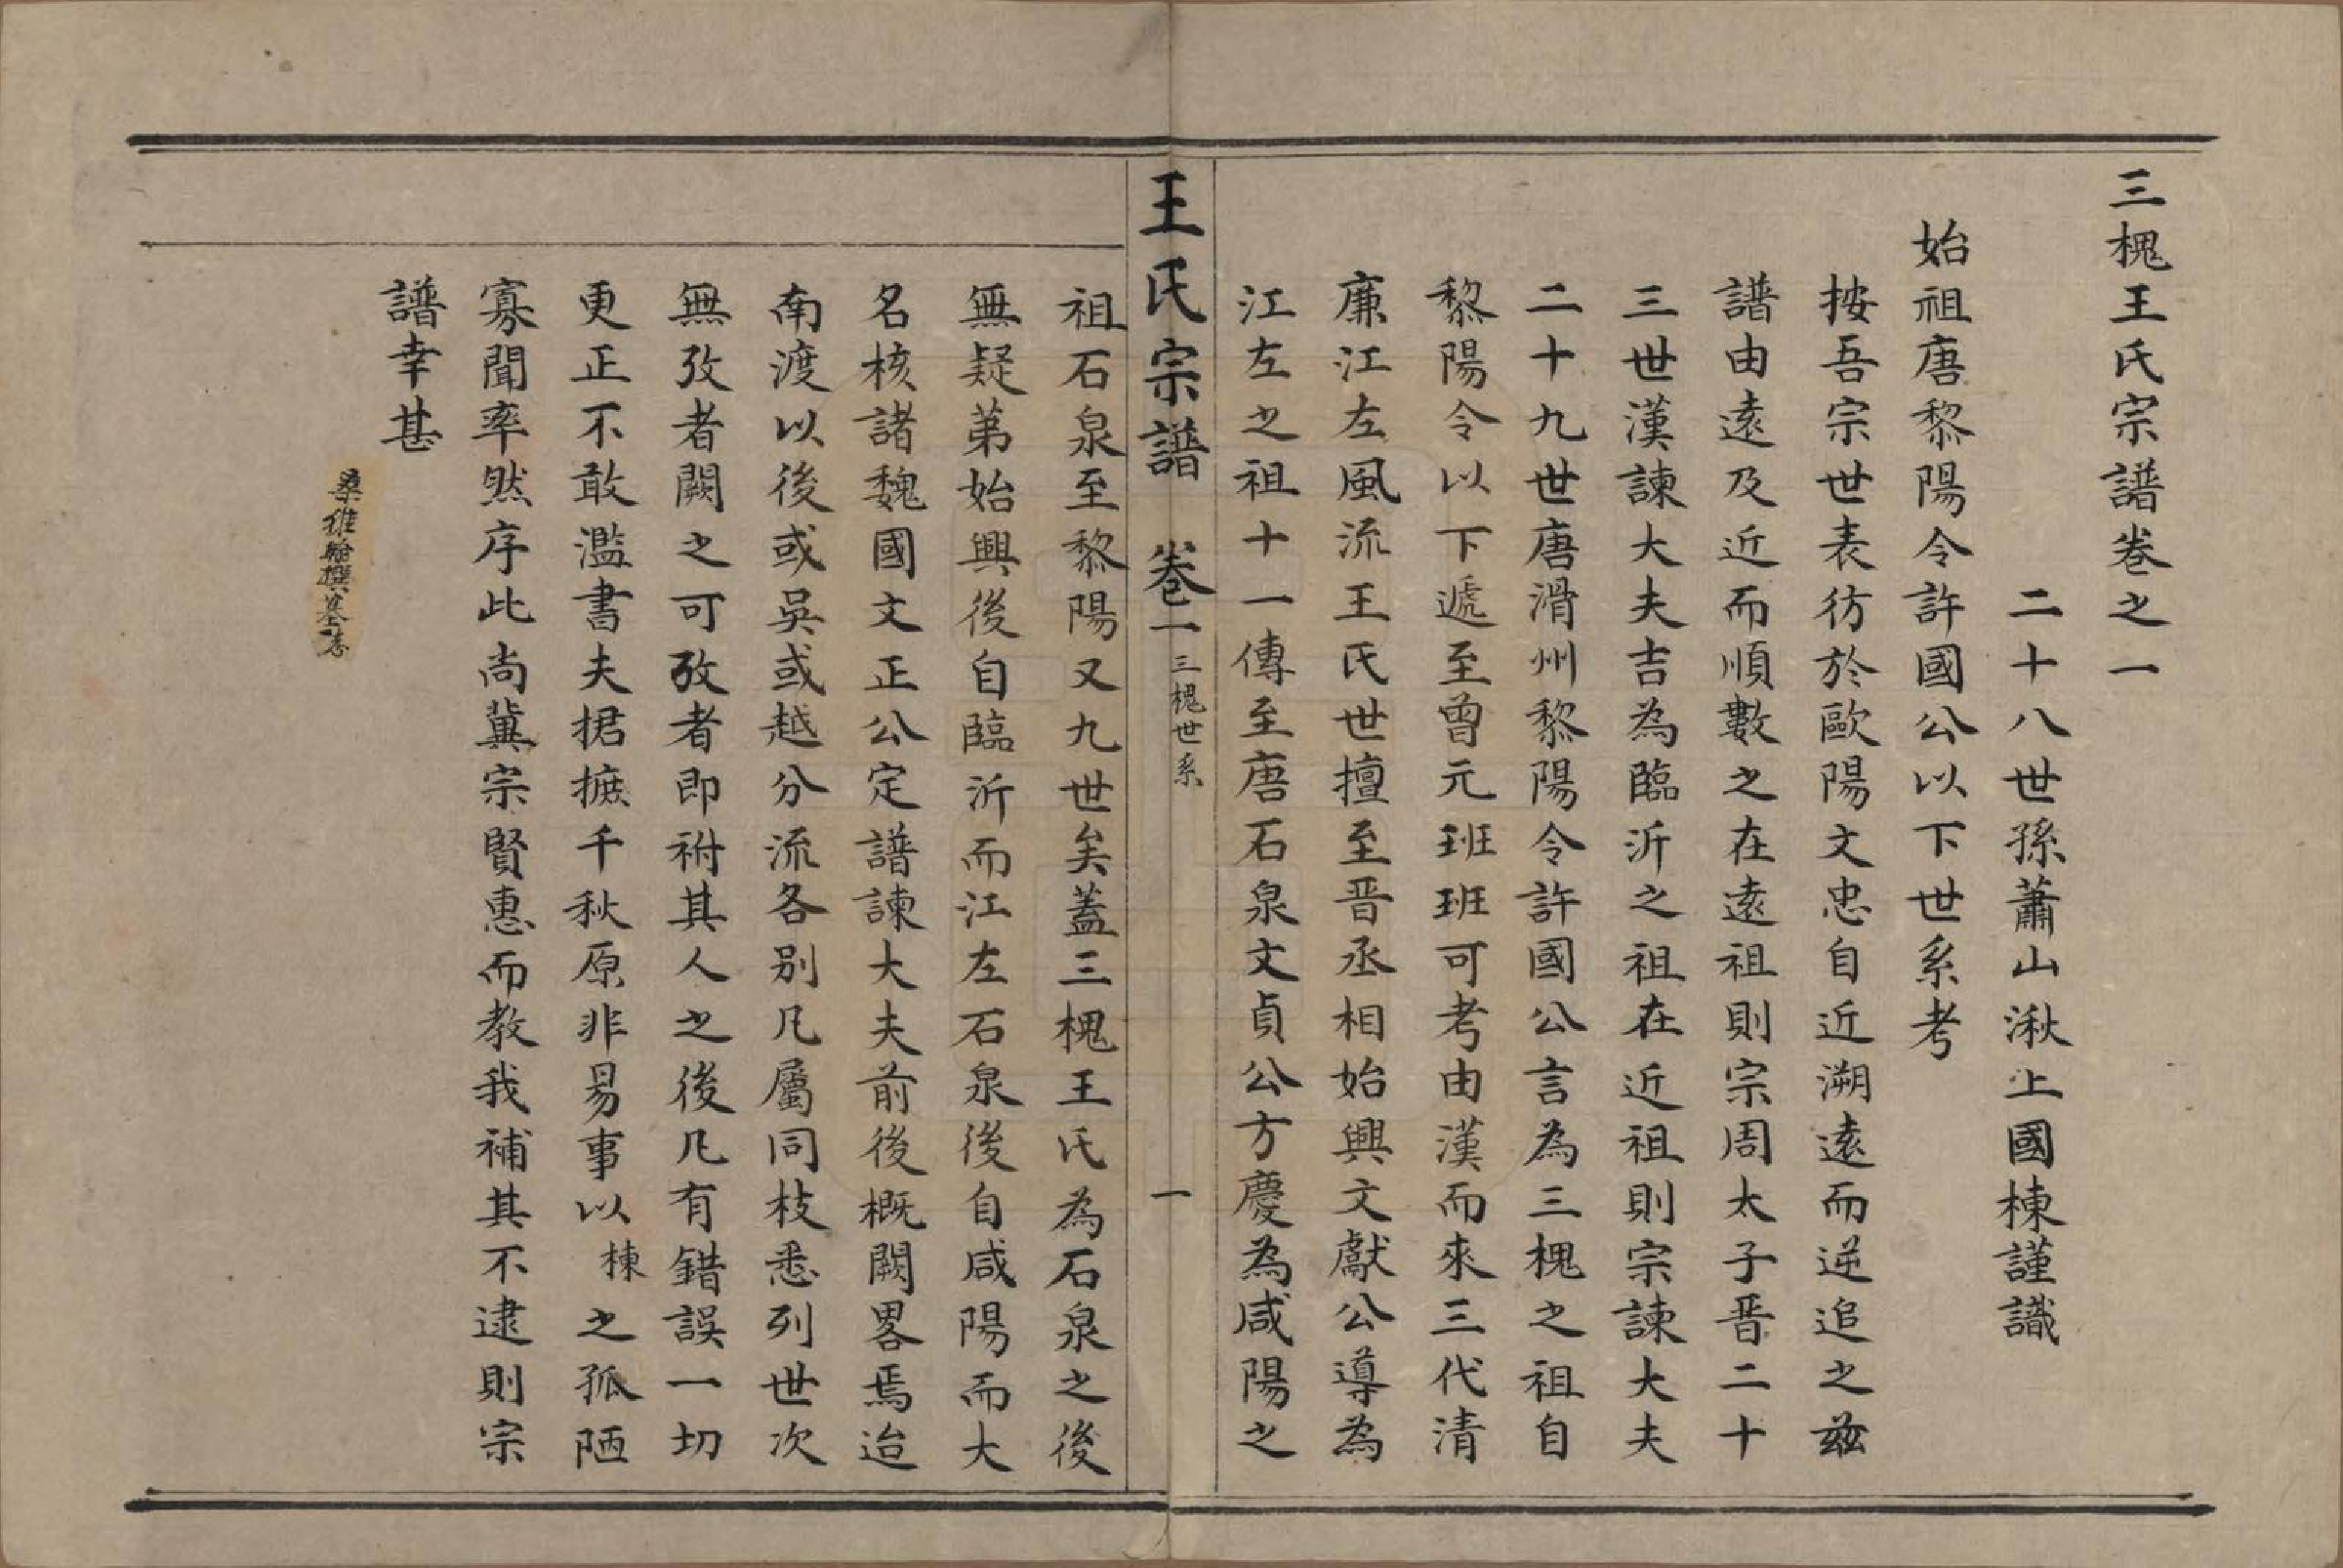 三槐王氏宗譜卷之一
二十八世孫蕭山湫上國棟謹識
始祖唐黎陽令許國公以下世系考
按吾宗世表彷於歐陽文忠自近溯遠而逆追之兹
譜由遠及近而順數之在遠祖則宗周太子晋二十
三世漢諫大夫吉為臨沂之祖在近祖則宗諫大夫
二十九世唐滑州黎陽令許國公言為三槐之祖自
黎陽令以下遞至曾元班班可考由漢而來三代清
廉江左風流王氏世擅至晋丞相始興文獻公導為
江左之祖十一傳至唐石泉文貞公方慶為咸陽之
王氏宗譜 卷一 三槐世系 一
祖石泉至黎陽又九世矣蓋三槐王氏為石泉之後
無疑苐始興後自臨沂而江左石泉後自咸陽而大
名核諸魏國文正公定譜諫大夫前後概闕畧焉迨
南渡以後或吳或越分流各別凡屬同枝悉列世次
無攷者闕之可攷者即祔其人之後凡有錯誤一切
更正不敢濫書夫捃摭千秋原非易事以棟之孤陋
寡聞率然序此尚冀宗賢惠而教我補其不逮則宗
譜幸甚
桑維翰撰墓志